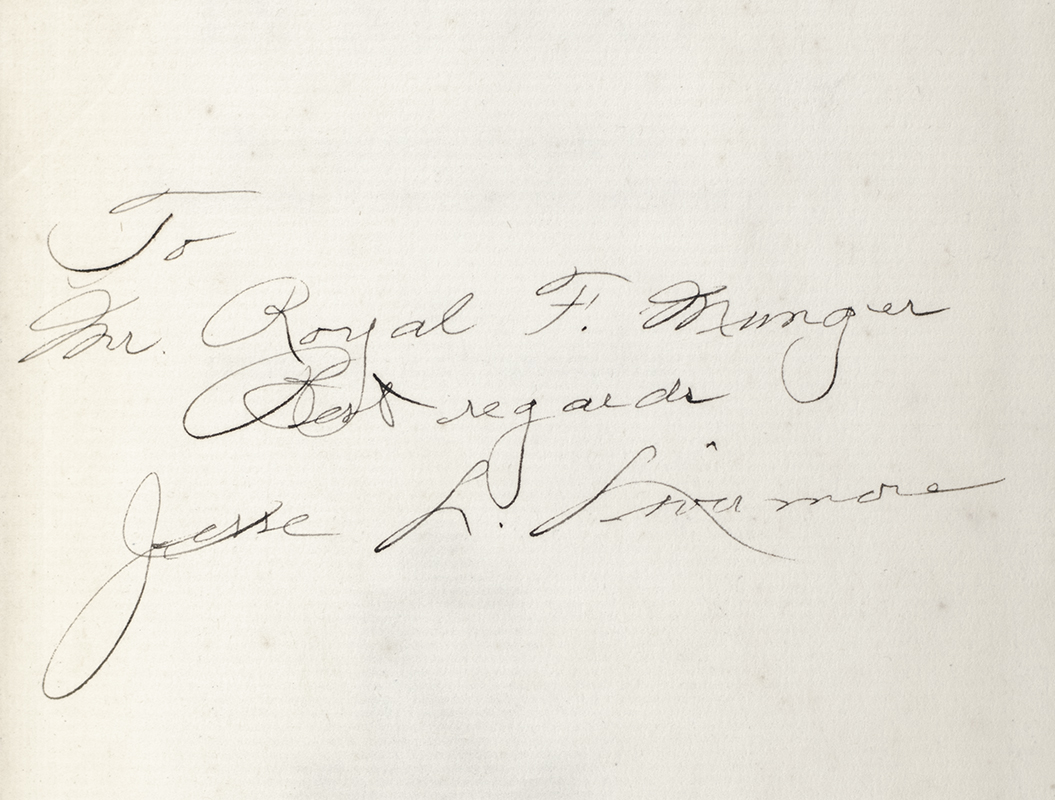 To
Mr. Royal F. Munger
Best regards
Jesse L. Livermore